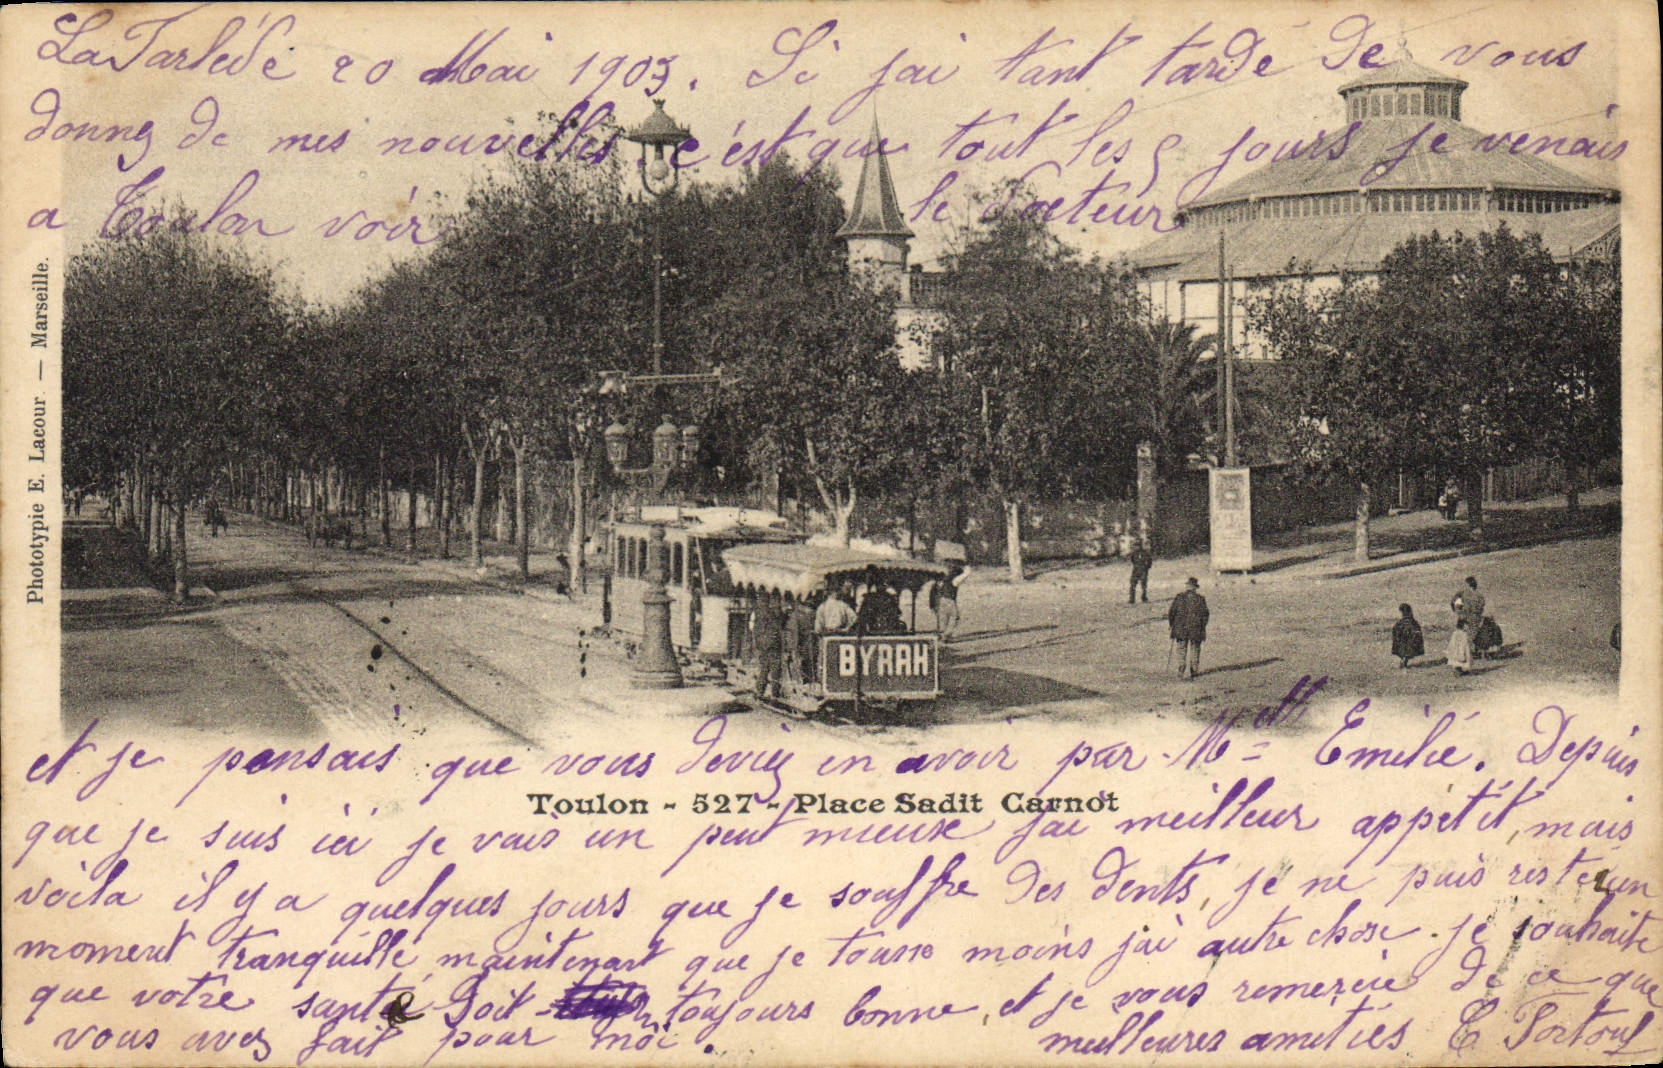 La Tarlède 20 Mai 1903. Si jai tant tardé de vous
donnez de mes nouvelles. c'est que tout les 5 jours je venais
a Toulon voir le docteur
Phototypie E. Lacour. — Marseille.
BYRRH
et je pensais que vous deviez en avoir par Melle Emilie. Depuis
Toulon - 527 - Place Sadit Carnot
que je suis ici je vais un peu mieux jai meilleur appétit, mais
voila il y a quelques jours que je souffre des dents, je ne puis rester un
moment tranquille maintenant que je tousse moins j'ai autre chose. je souhaite
que votre santé soit toujours bonne, et je vous remercie de ce que
vous avez fait pour moi. meilleures amitiés C Portoul